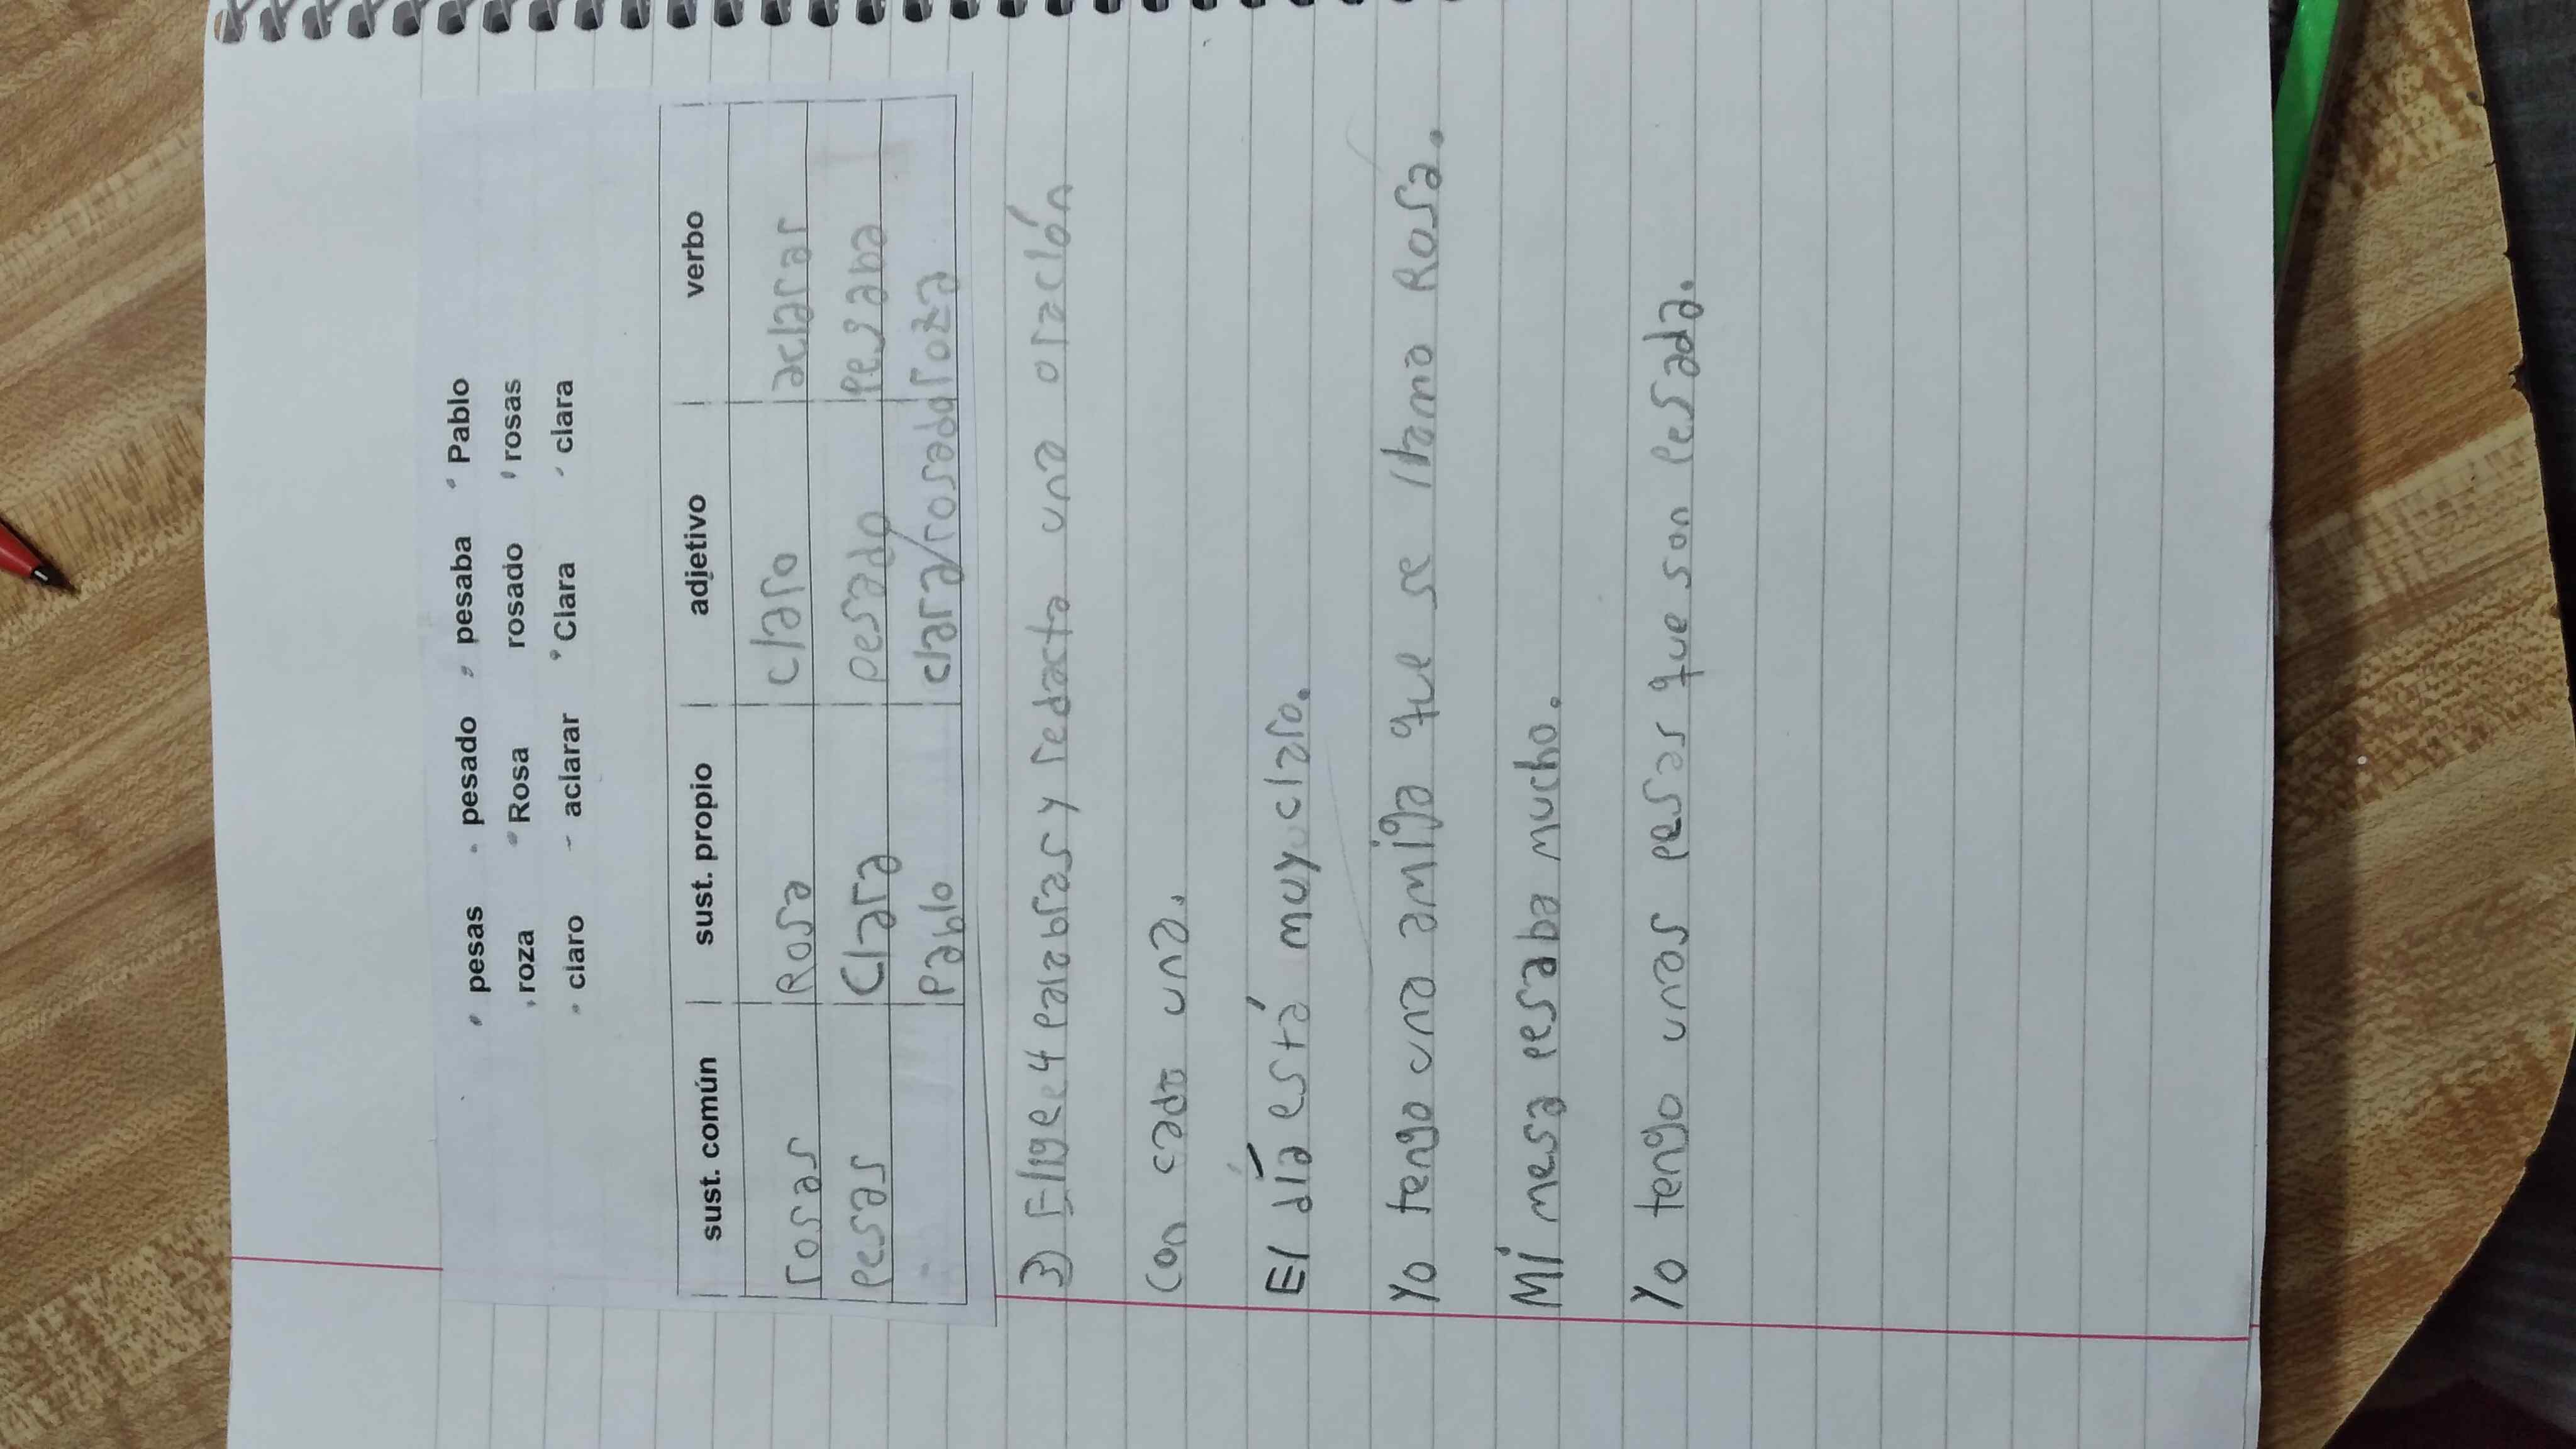 pesas pesado pesaba Pablo
roza Rosa rosado rosas
claro aclarar Clara clara
sust. común sust. propio adjetivo verbo
rosas Rosa claro aclarar
pesas Clara pesado pesaba
Pablo clara/rosado roza
3) Elige 4 palabras y redacta una oración
con cada una.
El día está muy claro.
Yo tengo una amiga que se llama Rosa.
Mi mesa pesaba mucho.
Yo tengo unas pesas que son pesada.